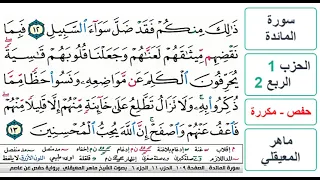 ذَٰلِكَ مِنكُمْ فَقَدْ ضَلَّ سَوَآءَ ٱلسَّبِيلِ ١٢ فَبِمَا
نَقْضِهِم مِّيثَٰقَهُمْ لَعَنَّٰهُمْ وَجَعَلْنَا قُلُوبَهُمْ قَٰسِيَةً
يُحَرِّفُونَ ٱلْكَلِمَ عَن مَّوَاضِعِهِۦ وَنَسُوا۟ حَظًّا مِّمَّا
ذُكِّرُوا۟ بِهِۦ وَلَا تَزَالُ تَطَّلِعُ عَلَىٰ خَآئِنَةٍ مِّنْهُمْ إِلَّا قَلِيلًا مِّنْهُمْ
فَٱعْفُ عَنْهُمْ وَٱصْفَحْ إِنَّ ٱللَّهَ يُحِبُّ ٱلْمُحْسِنِينَ ١٣
سورة
المائدة
الحزب 1
الربع 2
حفص - مكررة
ماهر
المعيقلي